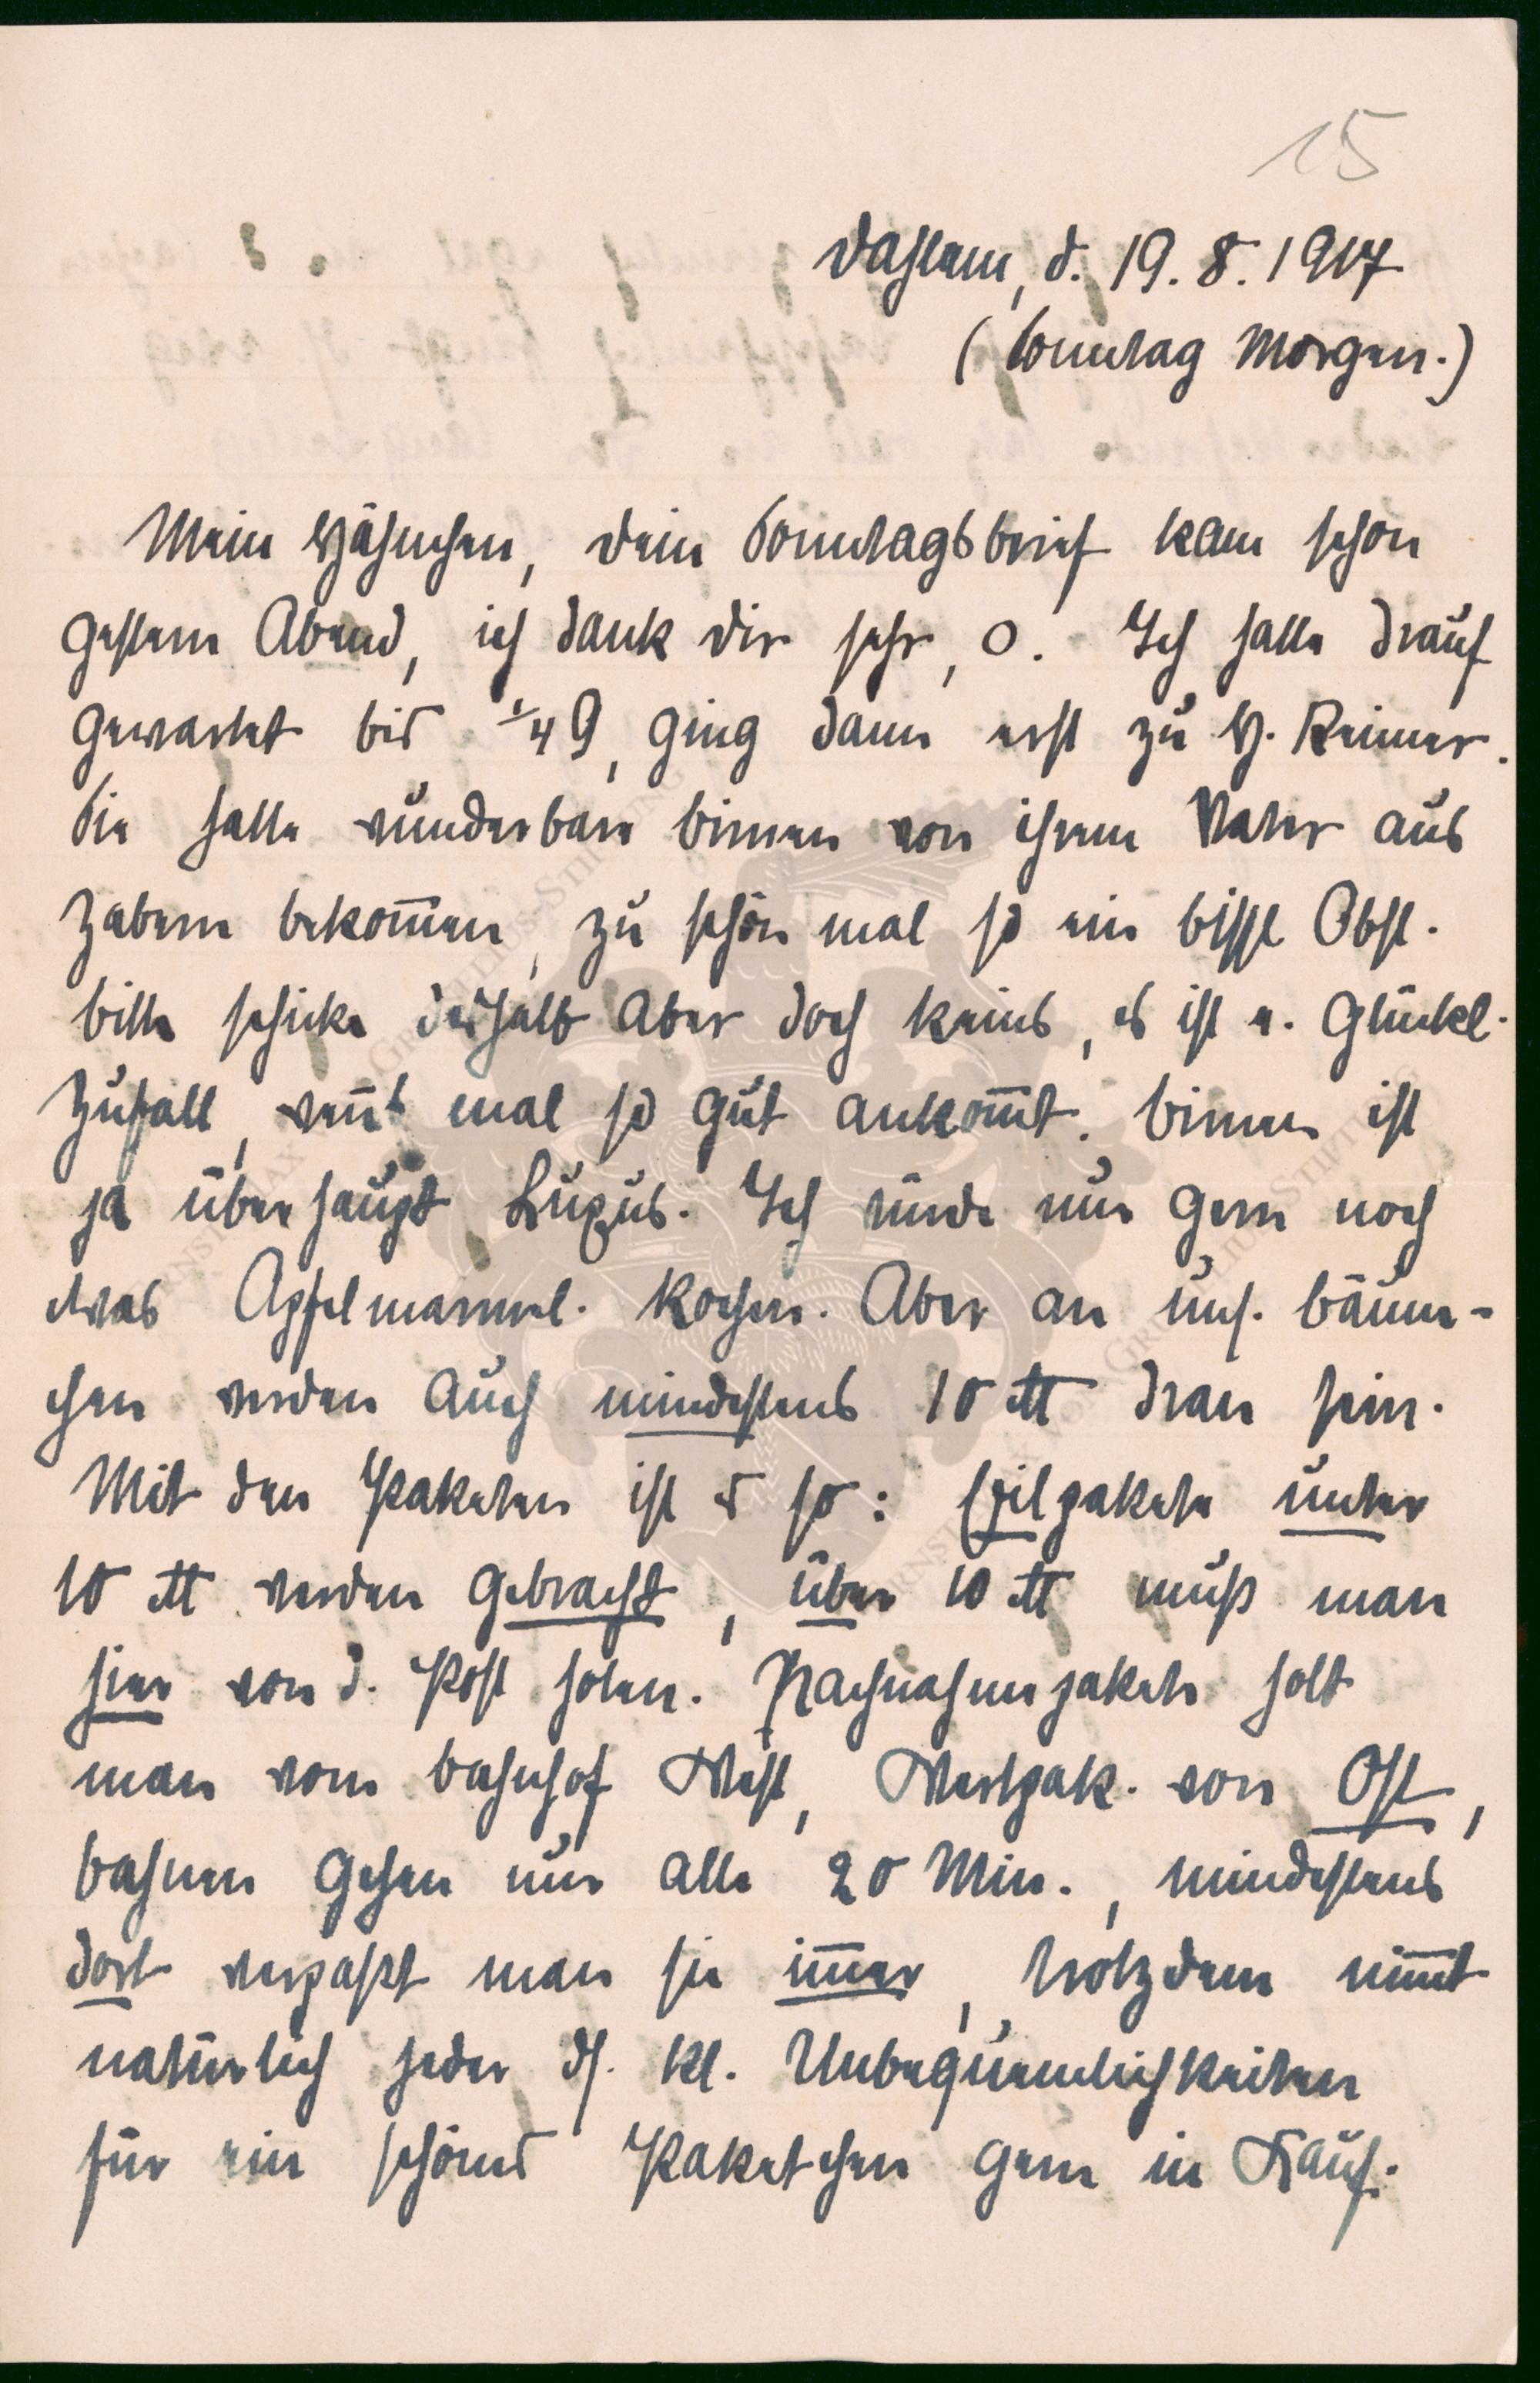 15
Dahlem, d. 19. 8. 1917
(Sonntag Morgen.)
Mein Hähnchen, Dein Sonntagsbrief kam schon
gestern Abend, ich dank Dir sehr, o. Ich hatte drauf
gewartet bis 1/4 9, ging dann erst zu H. Reimer.
Sie hatte wunderbare Birnen von ihrem Vater aus
Zabern bekom̅en, zu schön mal so ein bissl Obst.
Bitte schicke deshalb aber doch keins, es ist e. glückl.
Zufall, wen̅s mal so gut ankom̅t. Birnen ist
ja überhaupt Luxus. Ich würde nur gern noch
etwas Apfelmarmel. kochen. Aber an uns. Bäum-
chen werden auch mindestens 10 ℔ dran sein.
Mit den Paketen ist es so: Eilpakete unter
10 ℔ werden gebracht, über 10 ℔ muß man
hier von d. Post holen. Nachnahmepakete holt
man vom Bahnhof West, Wertpak. von Ost,
Bahnen gehen nur alle 20 Min., mindestens
dort verpaßt man sie im̅er, trotzdem nim̅t
natürlich jeder ds. kl. Unbequemlichkeiten
für ein schönes Paketchen gern in Kauf.
ERNST MAX VON GRUNELIUS-STIFTUNG
ERNST MAX VON GRUNELIUS-STIFTUNG